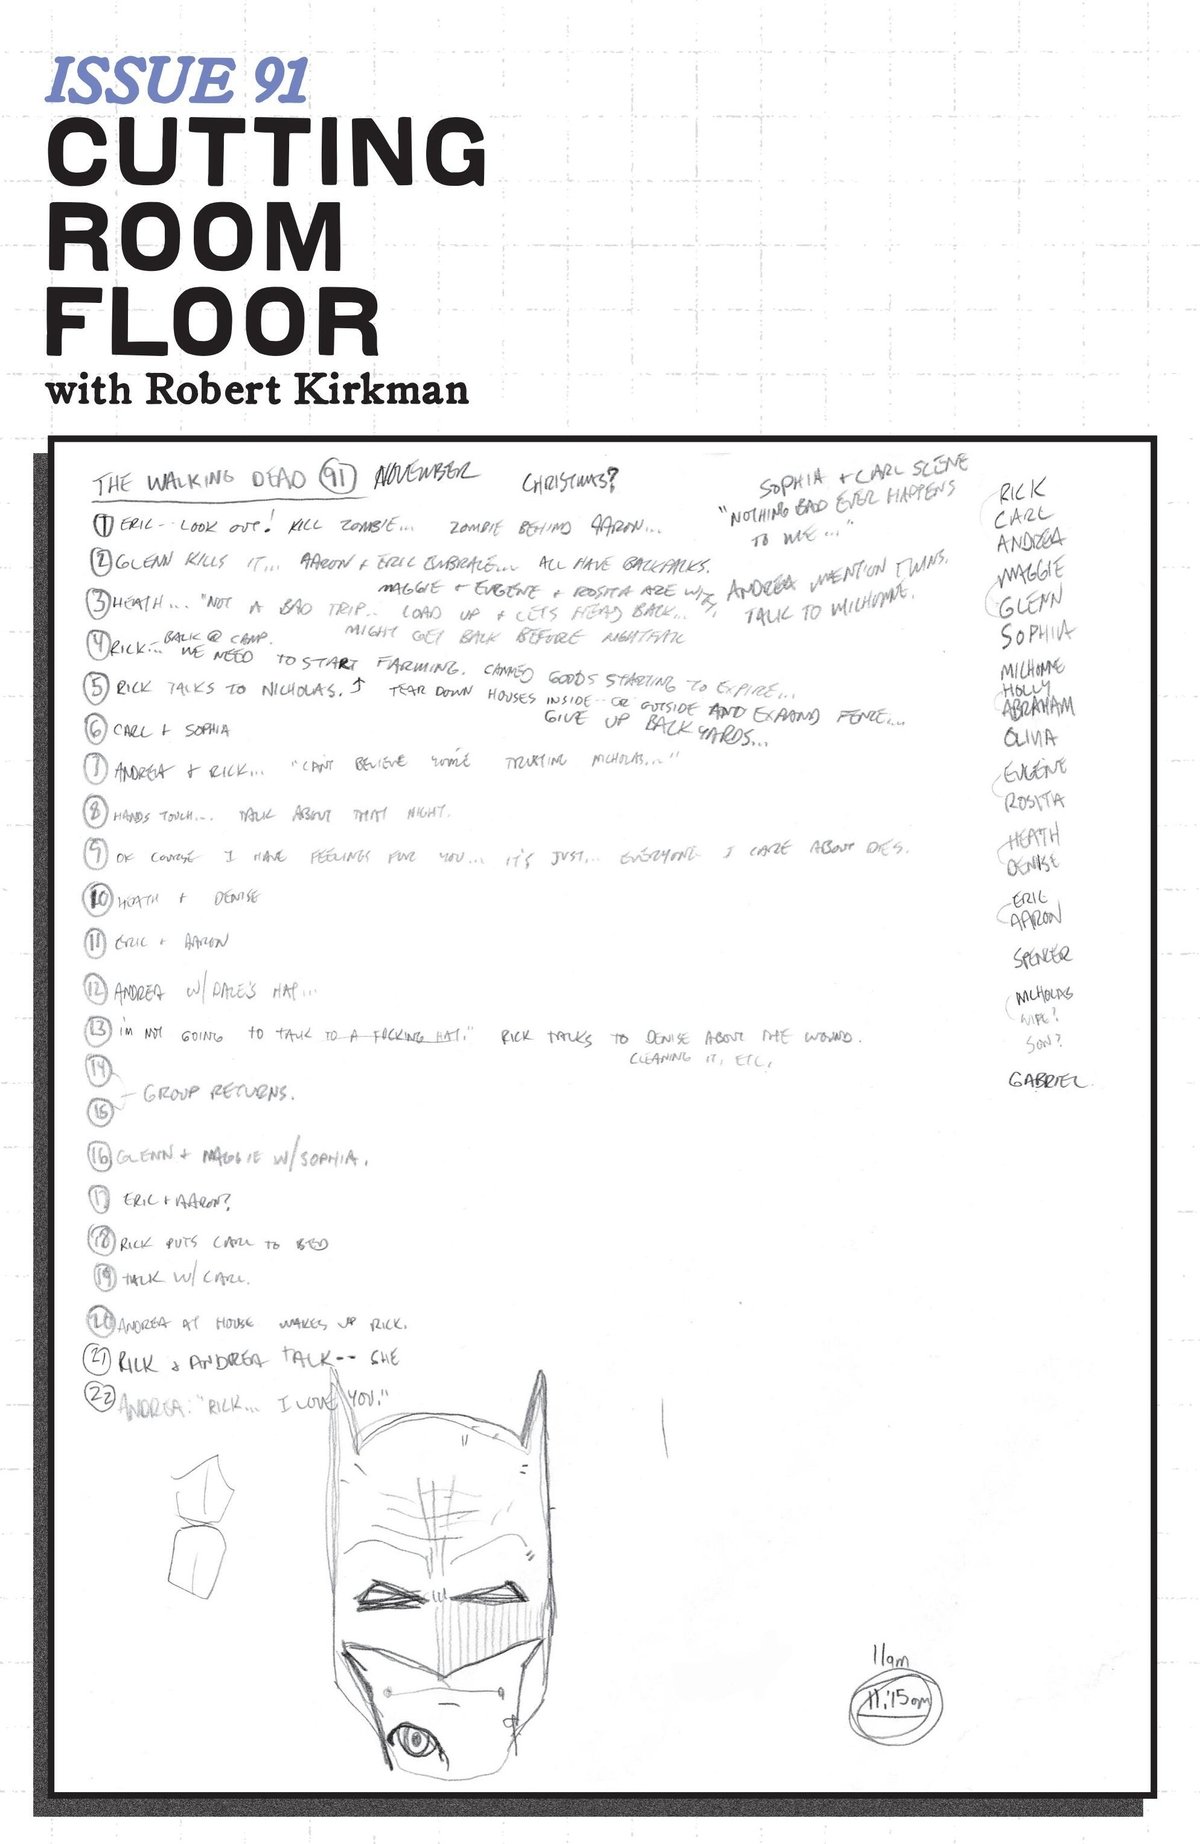 ISSUE 91
CUTTING
ROOM
FLOOR
with Robert Kirkman
THE WALKING DEAD 91 NOVEMBER CHRISTMAS?
SOPHIA + CARL SCENE
"NOTHING BAD EVER HAPPENS
TO ME..."
1 ERIC-- LOOK OUT! KILL ZOMBIE... ZOMBIE BEHIND AARON...
2 GLENN KILLS IT... AARON + ERIC EMBRACE... ALL HAVE BACKPACKS.
MAGGIE + EUGENE + ROSITA ARE W/
ANDREA MENTION TWINS.
TALK TO MICHONNE.
3 HEATH... "NOT A BAD TRIP.. LOAD UP + LETS HEAD BACK...
MIGHT GET BACK BEFORE NIGHTFALL
4 RICK... BACK @ CAMP.
WE NEED TO START FARMING. CANNED GOODS STARTING TO EXPIRE...
5 RICK TALKS TO NICHOLAS. ↑ TEAR DOWN HOUSES INSIDE-- OR OUTSIDE AND EXPAND FENCE...
GIVE UP BACK YARDS...
6 CARL + SOPHIA
7 ANDREA + RICK... "CAN'T BELIEVE YOU'RE TRUSTING NICHOLAS..."
8 HANDS TOUCH... TALK ABOUT THAT NIGHT.
9 OF COURSE I HAVE FEELINGS FOR YOU... IT'S JUST... EVERYONE I CARE ABOUT DIES.
10 HEATH + DENISE
11 ERIC + AARON
12 ANDREA W/ DALE'S HAT...
13 I'M NOT GOING TO TALK TO A FUCKING HAT." RICK TALKS TO DENISE ABOUT THE WOUND.
CLEANING IT, ETC,
14
- GROUP RETURNS.
15
16 GLENN + MAGGIE W/ SOPHIA.
17 ERIC + AARON?
18 RICK PUTS CARL TO BED
19 TALK W/ CARL.
20 ANDREA AT HOUSE WAKES UP RICK.
21 RICK & ANDREA TALK-- SHE
22 ANDREA: "RICK... I LOVE YOU."
RICK
CARL
ANDREA
MAGGIE
GLENN
SOPHIA
MICHONNE
HOLLY
ABRAHAM
OLIVIA
EUGENE
ROSITA
HEATH
DENISE
ERIC
AARON
SPENCER
NICHOLAS
WIFE?
SON?
GABRIEL
11am
11:15am